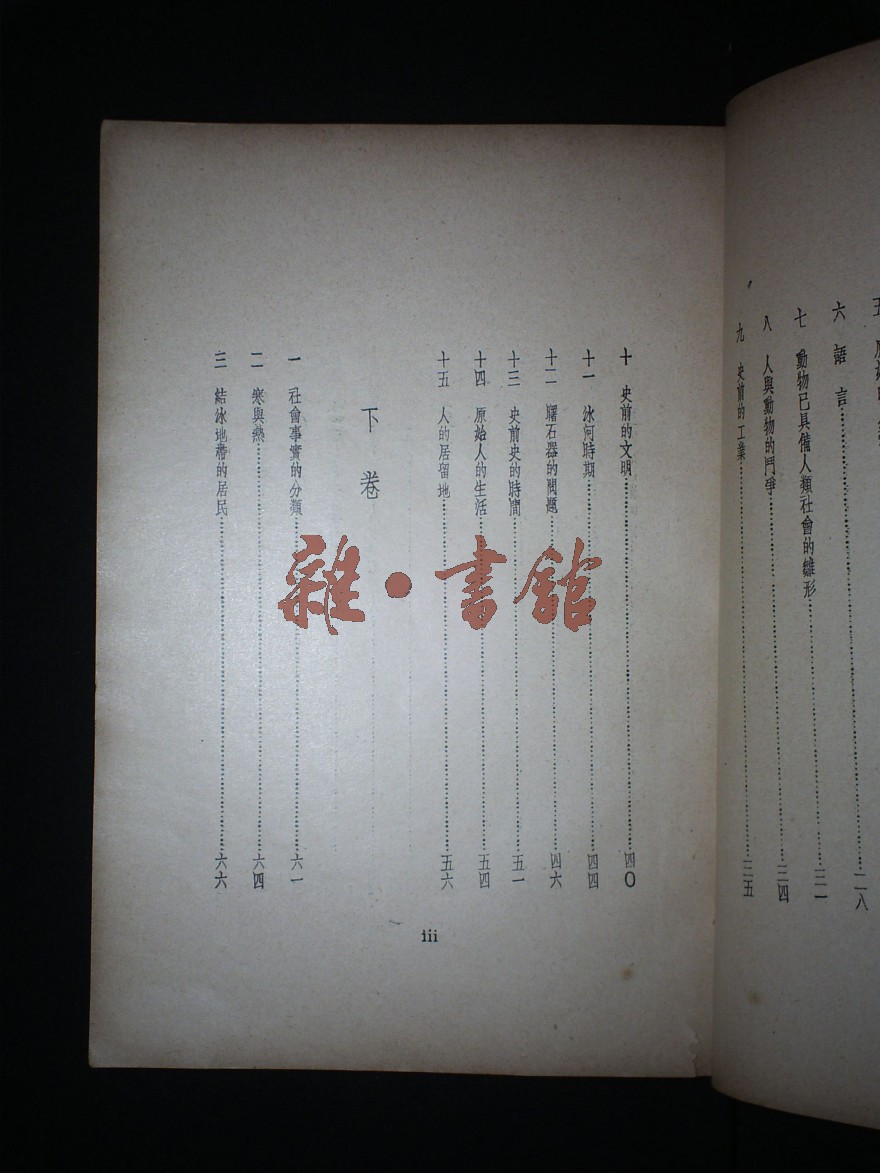 六 語言 二八
七 動物已具備人類社會的雛形 三一
八 人與動物的鬥爭 三四
九 史前的工業 三五
十 史前的文明 四〇
十一 冰河時期 四四
十二 曙石器的問題 四六
十三 史前史的時間 五一
十四 原始人的生活 五四
十五 人的居留地 五六
下卷
一 社會事實的分類 六一
二 寒與熱 六四
三 結冰地帶的居民 六六
iii
雜·書館